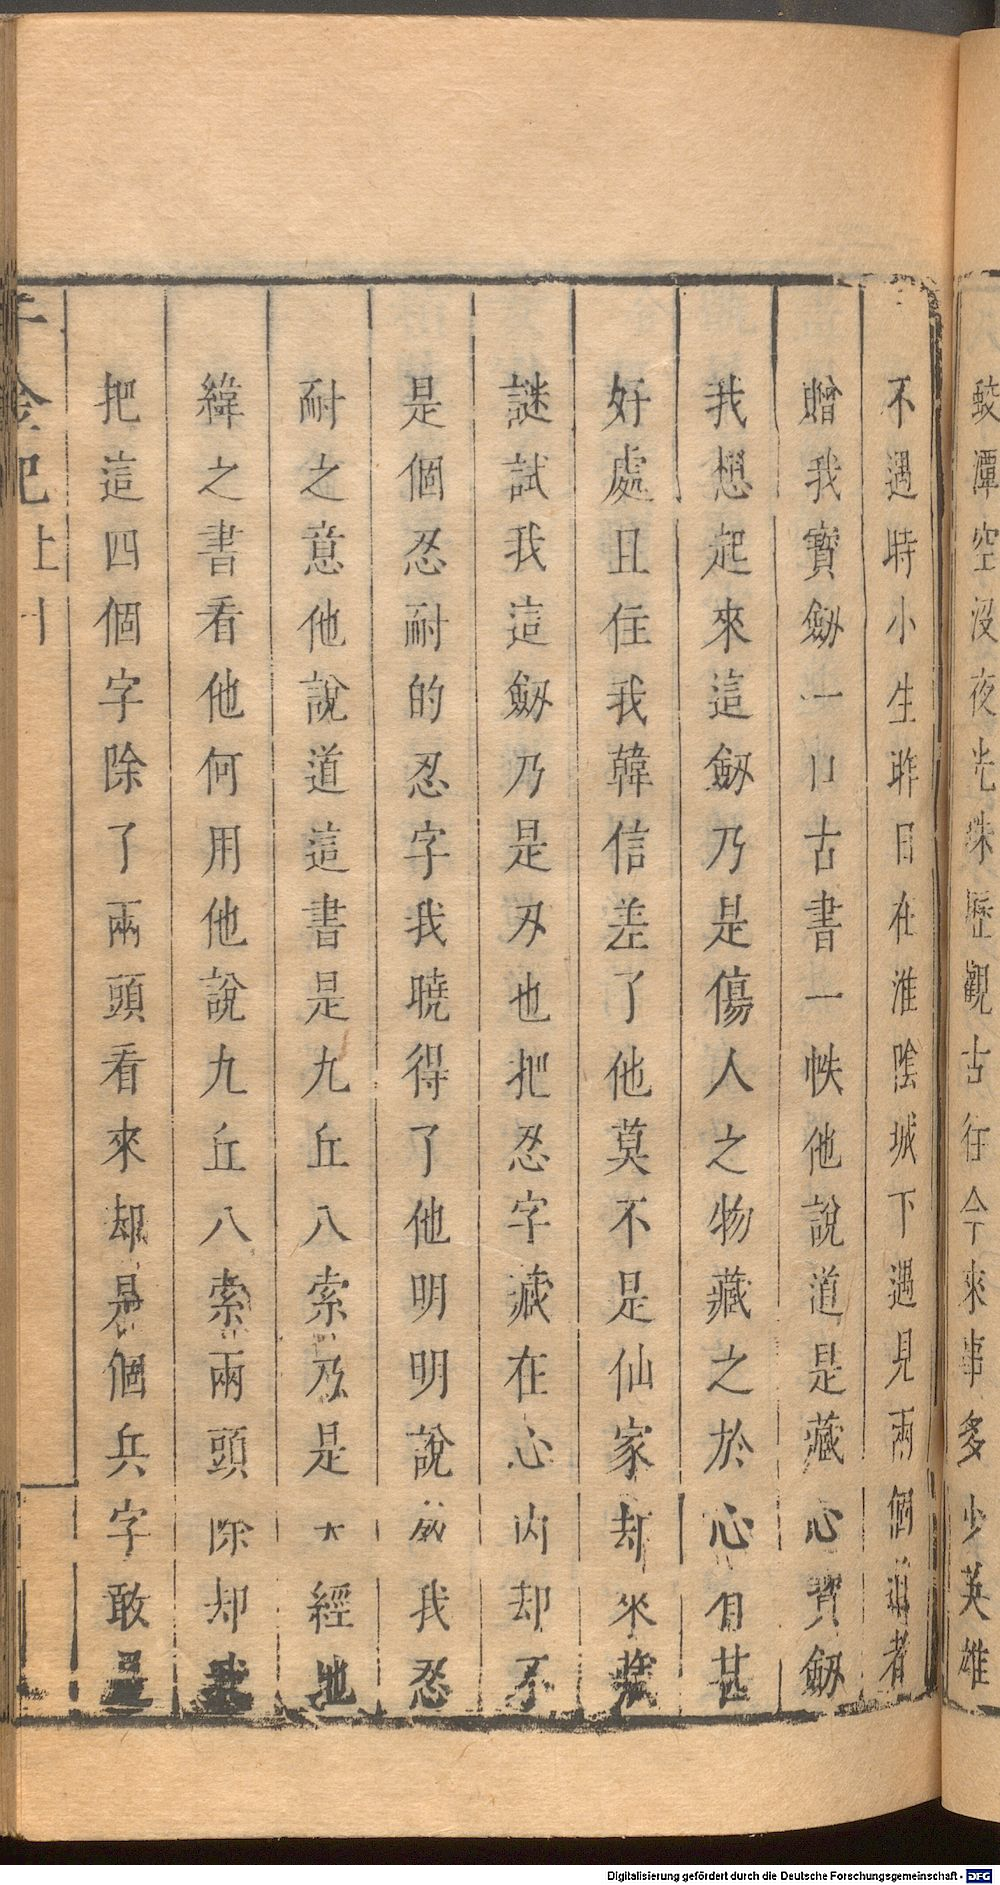 蛟潭空沒夜光珠歷觀古往今來事多少英雄
不遇時小生昨日在淮陰城下遇見兩個道者
贈我寶劔一口古書一帙他說道是藏心寶劔
我想起來這劔乃是傷人之物藏之於心有甚
好處且住我韓信差了他莫不是仙家却來
謎試我這劔乃是刃也把忍字藏在心內却不
是個忍耐的忍字我曉得了他明明說教我忍
耐之意他說道這書是九丘八索乃是天經地
緯之書看他何用他說九丘八索兩頭除却
把這四個字除了兩頭看來却是個兵字敢是
千金記上
Digitalisierung gefördert durch die Deutsche Forschungsgemeinschaft - DFG